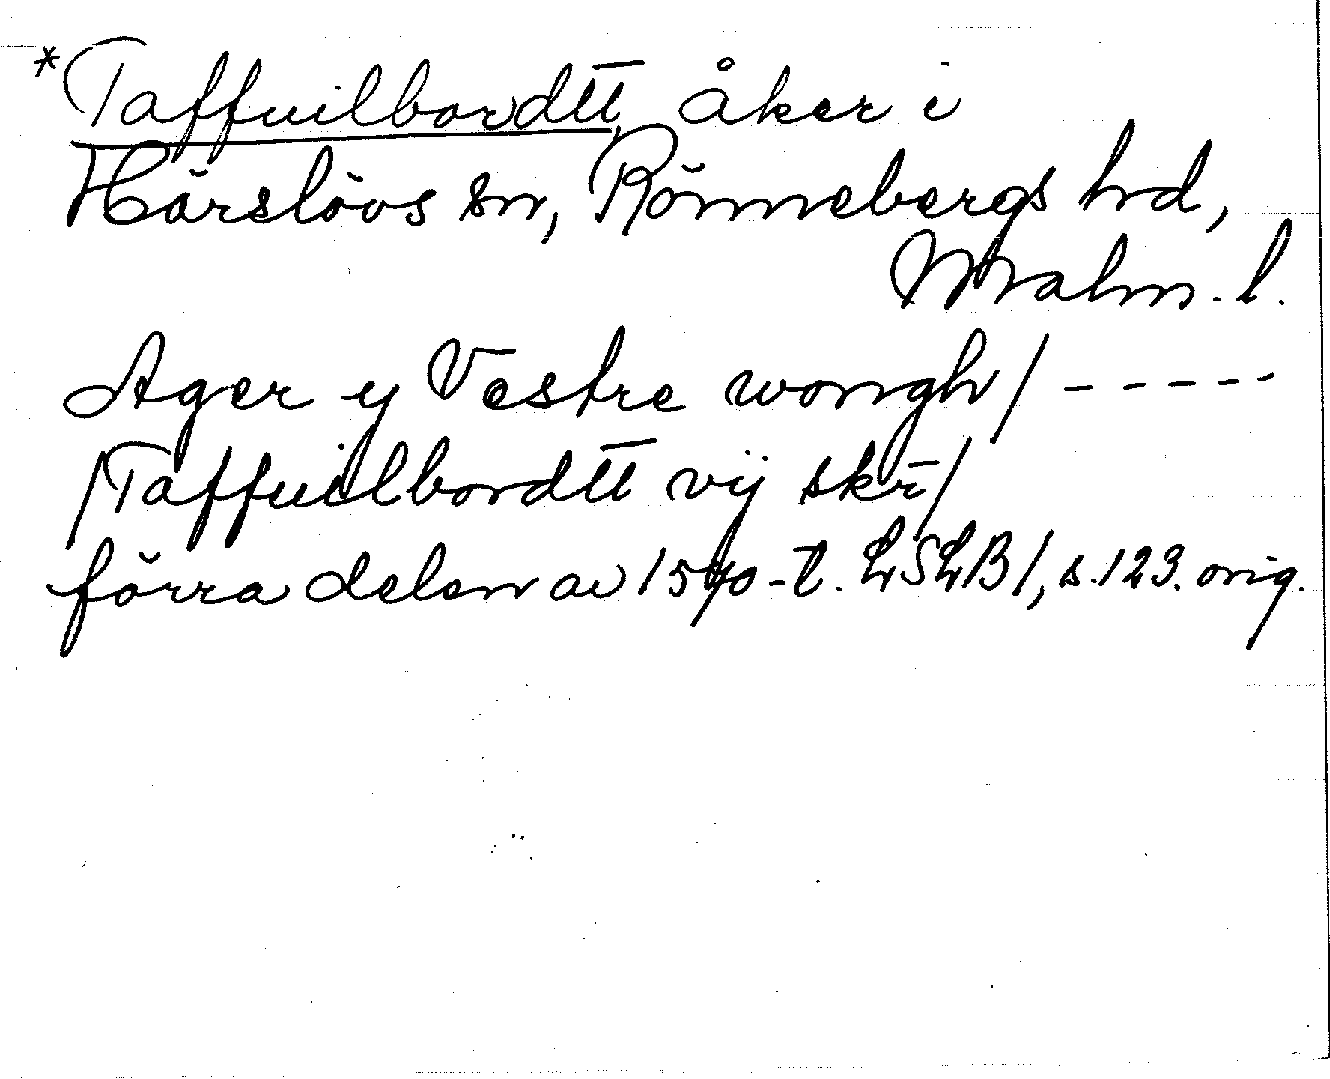 *Taffuilbordtt, åker i
Härslövs sn, Rönnebergs hd,
Malm. l.
Ager y Vestre wongh / - - - - -
/Taffuilbordtt vij skr̄/
förra delen av 1570-t. LSLB 1, s. 123. orig.